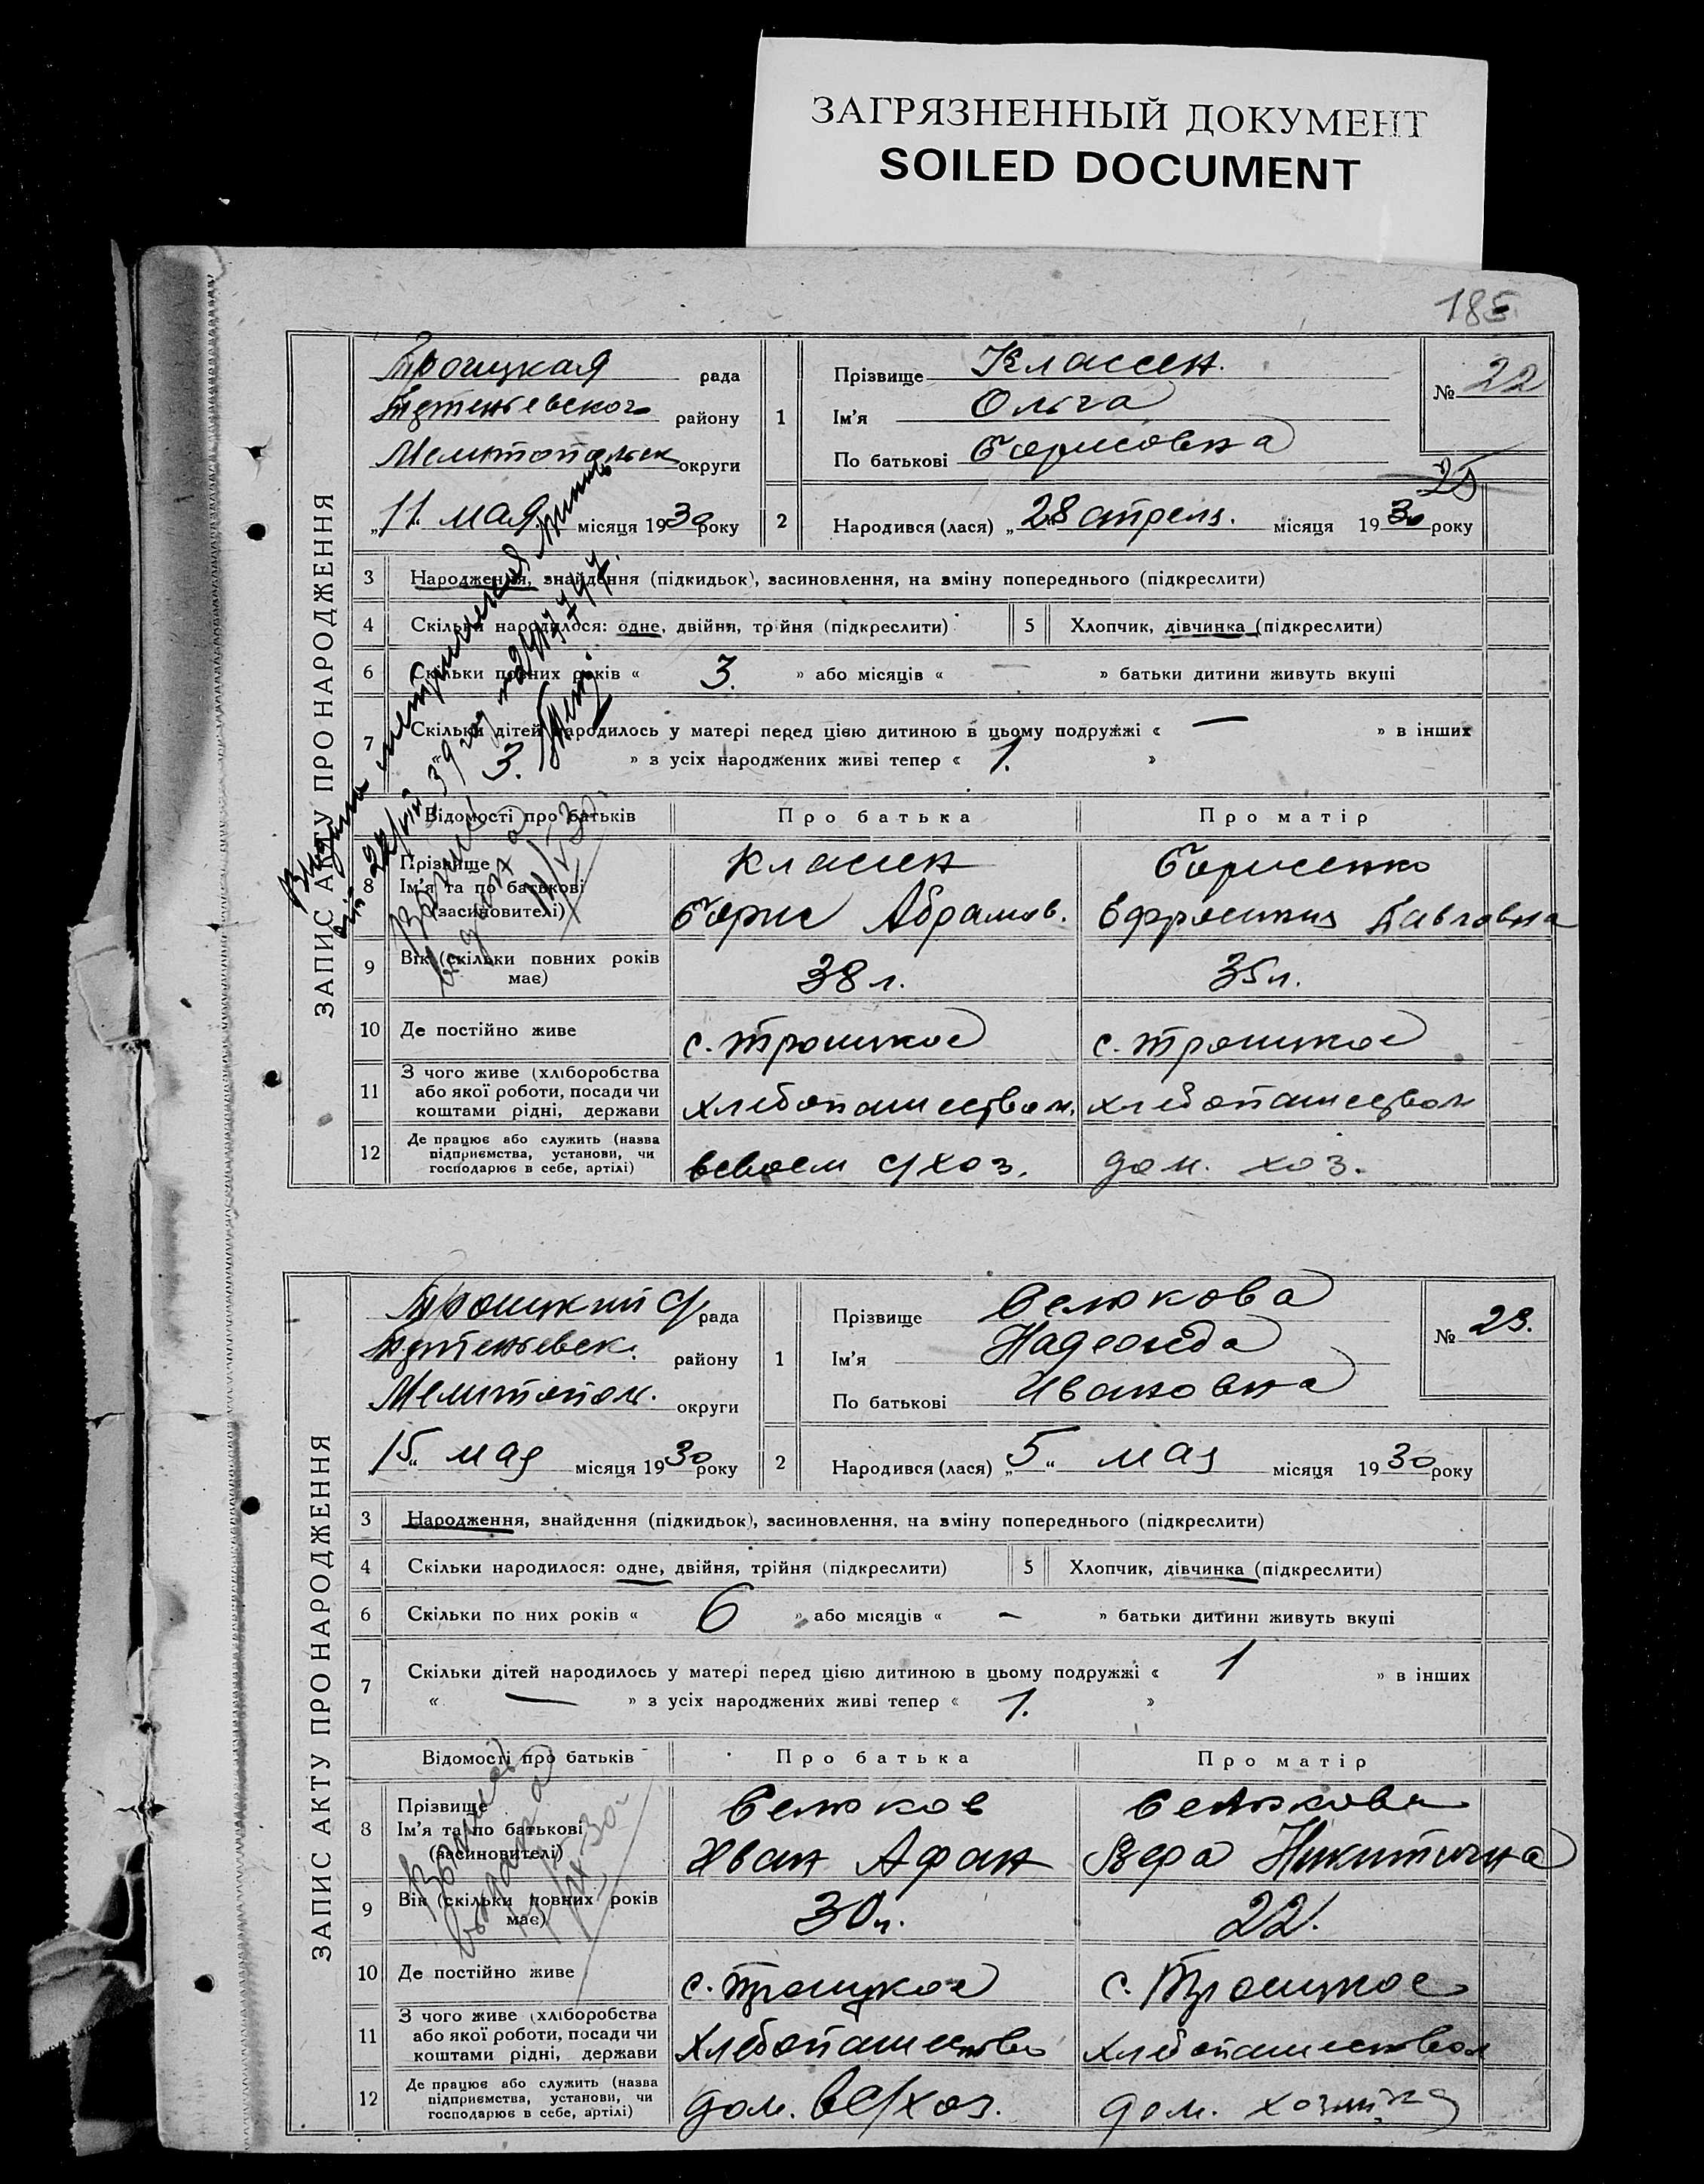 ЗАГРЯЗНЕННЫЙ ДОКУМЕНТ
SOILED DOCUMENT
185.
ЗАПИС АКТУ ПРО НАРОДЖЕННЯ
Троицкая рада
району
округи
„11“ мая місяця 1930 року
1 Прізвище Классен.
Ім'я Ольга
По батькові Борисовна
№ 22
25
2 Народився (лася) „28“ апреля. місяця 1930 року
3 Народження, знайдення (підкидьок), засиновлення, на зміну попереднього (підкреслити)
4 Скільки народилося: одне, двійня, трійня (підкреслити)
5 Хлопчик, дівчинка (підкреслити)
6 Скільки повних років « 3. » або місяців « — » батьки дитини живуть вкупі
7 Скільки дітей народилось у матері перед цією дитиною в цьому подружжі « — » в інших
« 3. » з усіх народжених живі тепер « 1. »
Відомості про батьків Про батька Про матір
8 Прізвище
Ім'я та по батькові
(засиновителі)
Класен
Борис Абрамов.
Борисенко
Ефросиния Павловна
9 Вік (скільки повних років має) 38 л. 35 л.
10 Де постійно живе с. Троицкое с. Троицкое
11 З чого живе (хліборобства
або якої роботи, посади чи
коштами рідні, держави
хлебопашеством. хлебопашеством
12 Де працює або служить (назва
підприємства, установи, чи
господарює в себе, артілі)
в своем с/хоз. дом. хоз.
ЗАПИС АКТУ ПРО НАРОДЖЕННЯ
Троицкий с/ рада
району
Мелитопол. округи
„15“ мая місяця 1930 року
1 Прізвище Селюкова
Ім'я Надежда
По батькові Ивановна
№ 23.
2 Народився (лася) „5“ мая місяця 1930 року
3 Народження, знайдення (підкидьок), засиновлення, на зміну попереднього (підкреслити)
4 Скільки народилося: одне, двійня, трійня (підкреслити)
5 Хлопчик, дівчинка (підкреслити)
6 Скільки по них років « 6 » або місяців « — » батьки дитини живуть вкупі
7 Скільки дітей народилось у матері перед цією дитиною в цьому подружжі « 1 » в інших
« — » з усіх народжених живі тепер « 1. »
Відомості про батьків Про батька Про матір
8 Прізвище
Ім'я та по батькові
(засиновителі)
Селюков
Иван Афан
Селюкова
Вера Никитична
9 Вік (скільки повних років має) 30 л. 22.
10 Де постійно живе с. Троицкое с. Троицкое
11 З чого живе (хліборобства
або якої роботи, посади чи
коштами рідні, держави
хлебопашество хлебопашеством
12 Де працює або служить (назва
підприємства, установи, чи
господарює в себе, артілі)
дом. в с/хоз. дом.